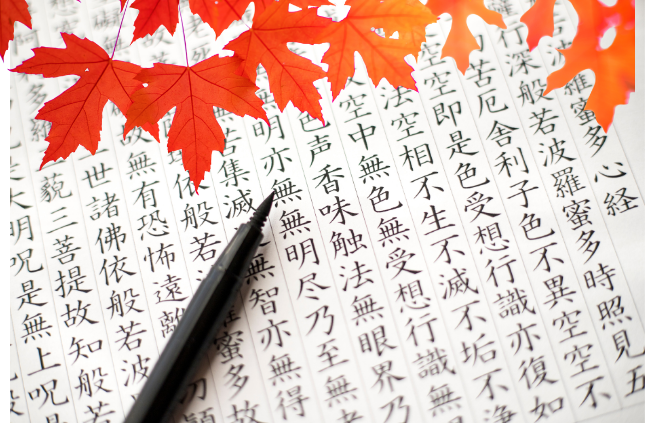 羅蜜多心経
行深般若波羅蜜多時照見五
苦厄舎利子色不異空空不
空空即是色受想行識亦復如
法空相不生不滅不垢不浄
空中無色無受想行識無
色声香味触法無眼界乃
明亦無無明尽乃至無
苦集滅無智亦無得
依般若蜜多故
故無有恐怖遠離顛
世諸佛依般若波
藐三菩提故知般若
大明呪是無上呪是